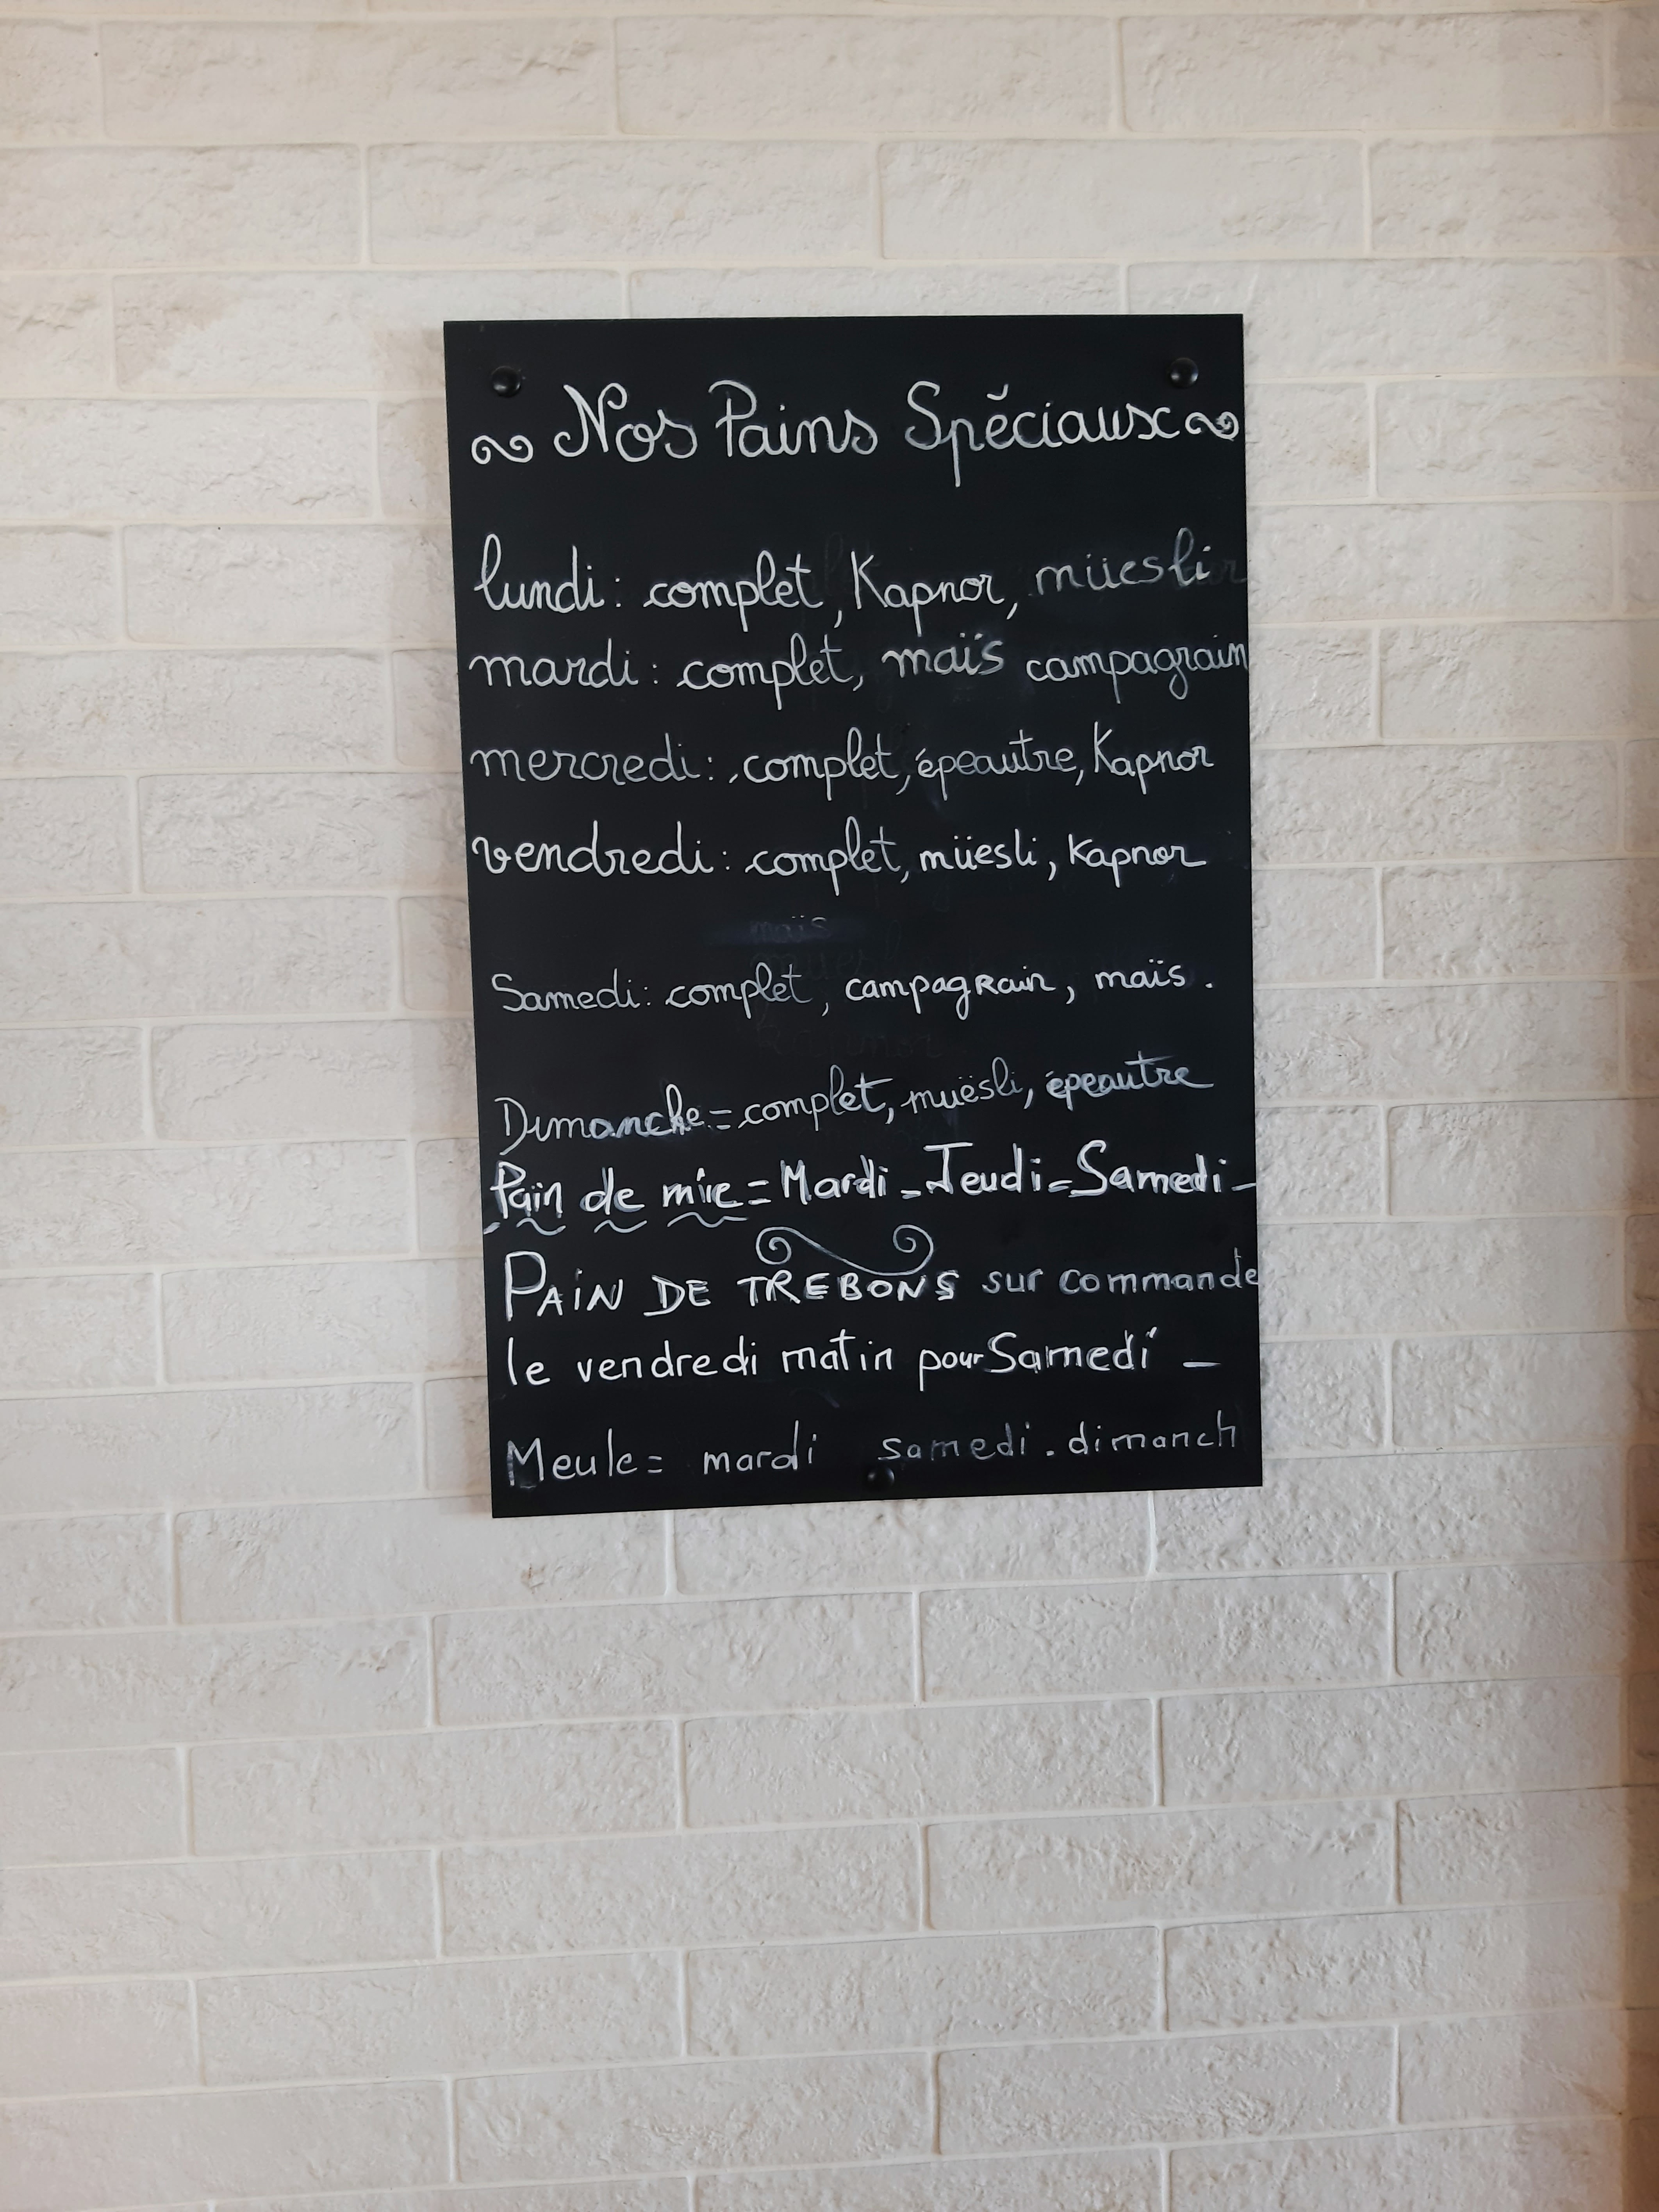 Nos Pains Spéciaux
lundi: complet, Kapnor, müesli
mardi: complet, maïs campagrain
mercredi: complet, épeautre, Kapnor
vendredi: complet, müesli, Kapnor
maïs
Samedi: complet, campagrain, maïs.
Dimanche = complet, muësli, épeautre
Pain de mie = Mardi - Jeudi = Samedi -
PAIN DE TREBONS sur commande
le vendredi matin pour Samedi -
Meule = mardi samedi - dimanch